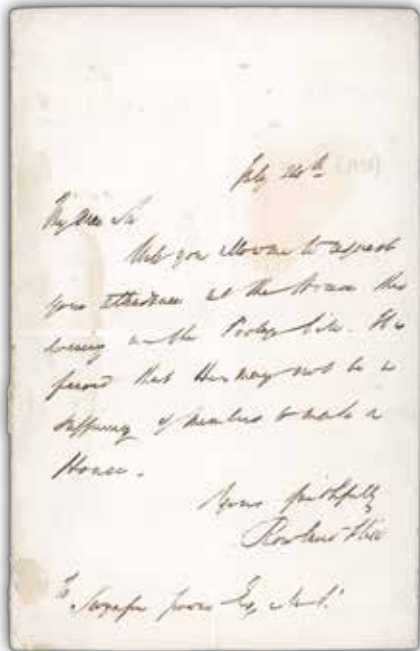 July 24th
My dear Sir
Will you allow me to request
your attendance at the House this
evening on the Postage Bill. It is
feared that there may not be a
sufficiency of members to make a
House.
Yours faithfully
Rowland Hill
To
Esq. M.P.